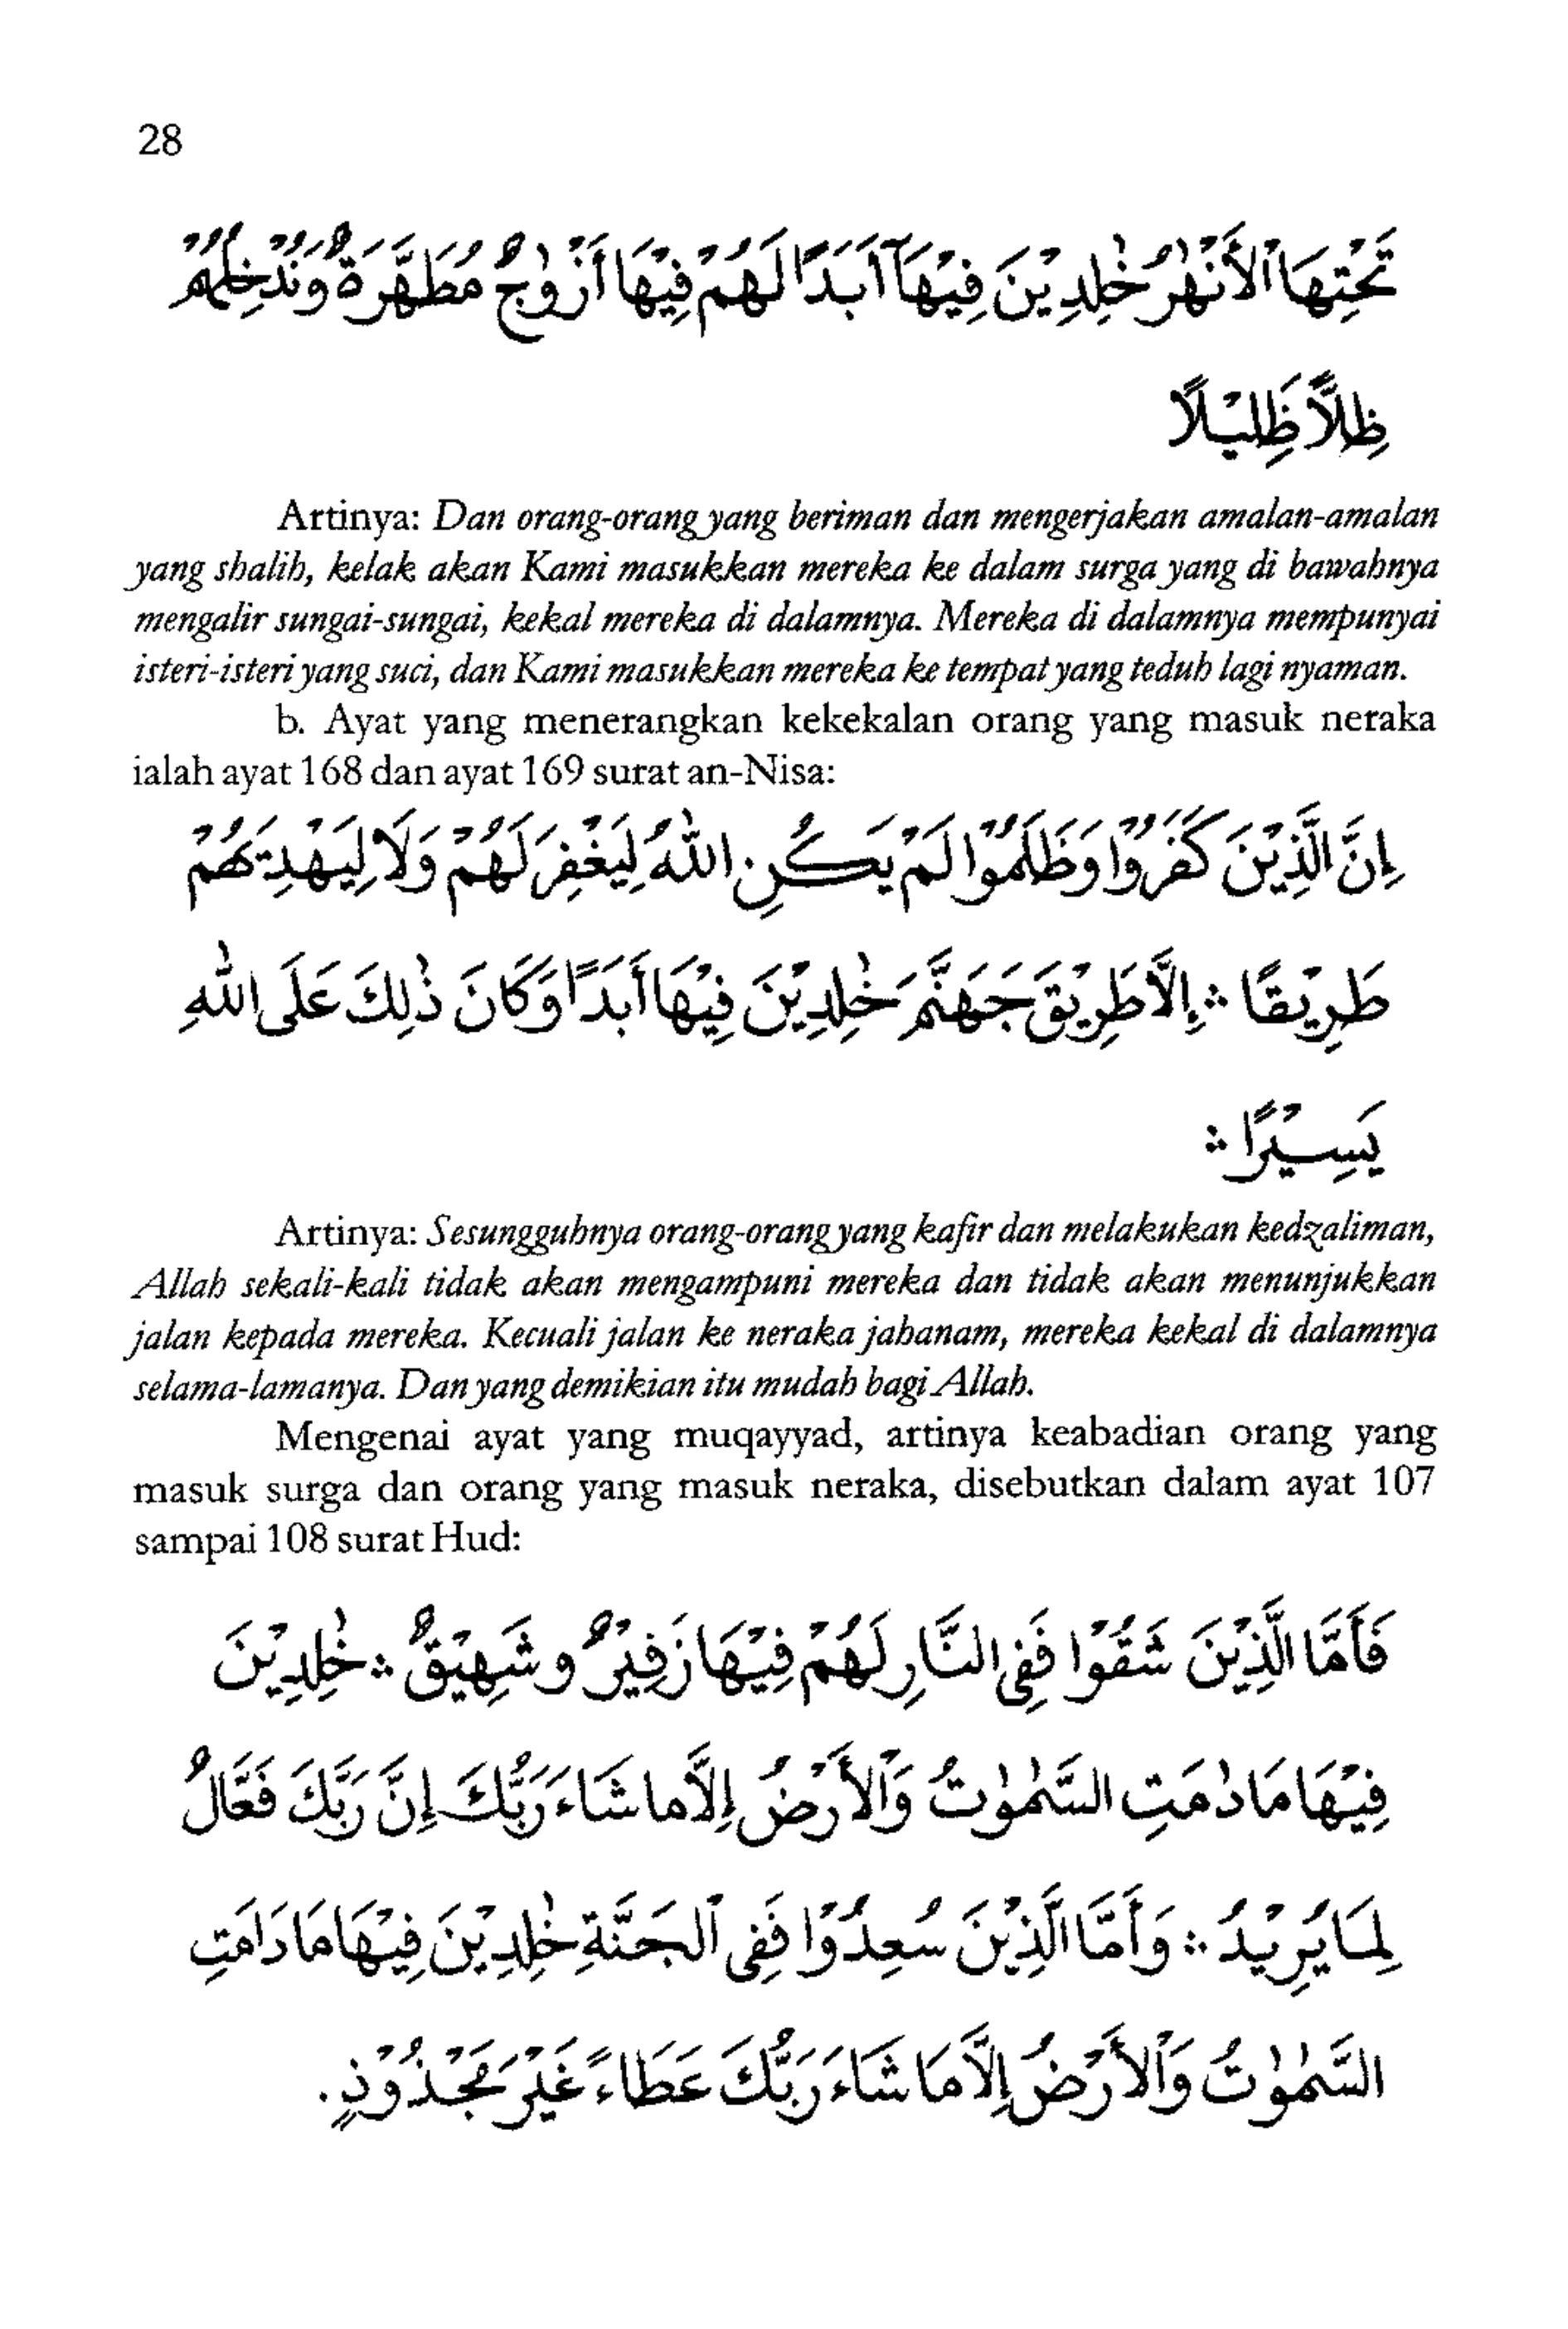 28
تَحْتِهَا ٱلْأَنْهٰرُ خٰلِدِيْنَ فِيْهَآ أَبَدًا لَهُمْ فِيْهَا أَزْوٰجٌ مُطَهَّرَةٌ وَنُدْخِلُهُمْ
ظِلاًّ ظَلِيْلًا
Artinya: Dan orang-orang yang beriman dan mengerjakan amalan-amalan
yang shalih, kelak akan Kami masukkan mereka ke dalam surga yang di bawahnya
mengalir sungai-sungai, kekal mereka di dalamnya. Mereka di dalamnya mempunyai
isteri-isteri yang suci, dan Kami masukkan mereka ke tempat yang teduh lagi nyaman.
b. Ayat yang menerangkan kekekalan orang yang masuk neraka
ialah ayat 168 dan ayat 169 surat an-Nisa:
اِنَّ الَّذِيْنَ كَفَرُوْا وَظَلَمُوْا لَمْ يَكُنِ اللّٰهُ لِيَغْفِرَ لَهُمْ وَلَا لِيَهْدِيَهُمْ
طَرِيْقًا ؞ إِلَّا طَرِيْقَ جَهَنَّمَ خٰلِدِيْنَ فِيْهَا أَبَدًا وَكَانَ ذٰلِكَ عَلَى اللّٰهِ
يَسِيْرًا ؞
Artinya: Sesungguhnya orang-orang yang kafir dan melakukan kedzaliman,
Allah sekali-kali tidak akan mengampuni mereka dan tidak akan menunjukkan
jalan kepada mereka. Kecuali jalan ke neraka jahanam, mereka kekal di dalamnya
selama-lamanya. Dan yang demikian itu mudah bagi Allah.
Mengenai ayat yang muqayyad, artinya keabadian orang yang
masuk surga dan orang yang masuk neraka, disebutkan dalam ayat 107
sampai 108 surat Hud:
فَأَمَّا الَّذِيْنَ شَقُوْا فَفِى النَّارِ لَهُمْ فِيْهَا زَفِيْرٌ و شَهِيْقٌ ؞ خٰلِدِيْنَ
فِيْهَا مَا دٰمَتِ السَّمٰوٰتُ وَٱلْأَرْضُ إِلَّا ما شَاءَ رَبُّكَ إِنَّ رَبَّكَ فَعَّالٌ
لِمَا يُرِيْدُ ؞ وَأَمَّا الَّذِيْنَ سُعِدُوْا فَفِى ٱلْجَنَّةِ خٰلِدِيْنَ فِيْهَا مَا دَامَتِ
السَّمٰوٰتُ وَٱلْأَرْضُ إِلَّا مَا شَاءَ رَبُّكَ عَطَاءً غَيْرَ مَجْذُوْذٍ.